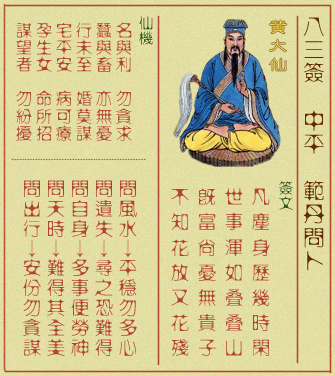 八三簽 中平 範丹問卜
黄大仙
簽文
凡塵身歷幾時閑
世事渾如叠叠山
既富尚憂無貴子
不知花放又花殘
仙機
名與利 勿貪求
蠶與畜 亦無憂
行未至 婚莫謀
宅平安 病可療
孕生女 命所招
謀望者 勿紛擾
問風水→平穩勿多心
問遺失→尋之恐難得
問自身→多事便勞神
問天時→難得其全美
問出行→安份勿貪謀